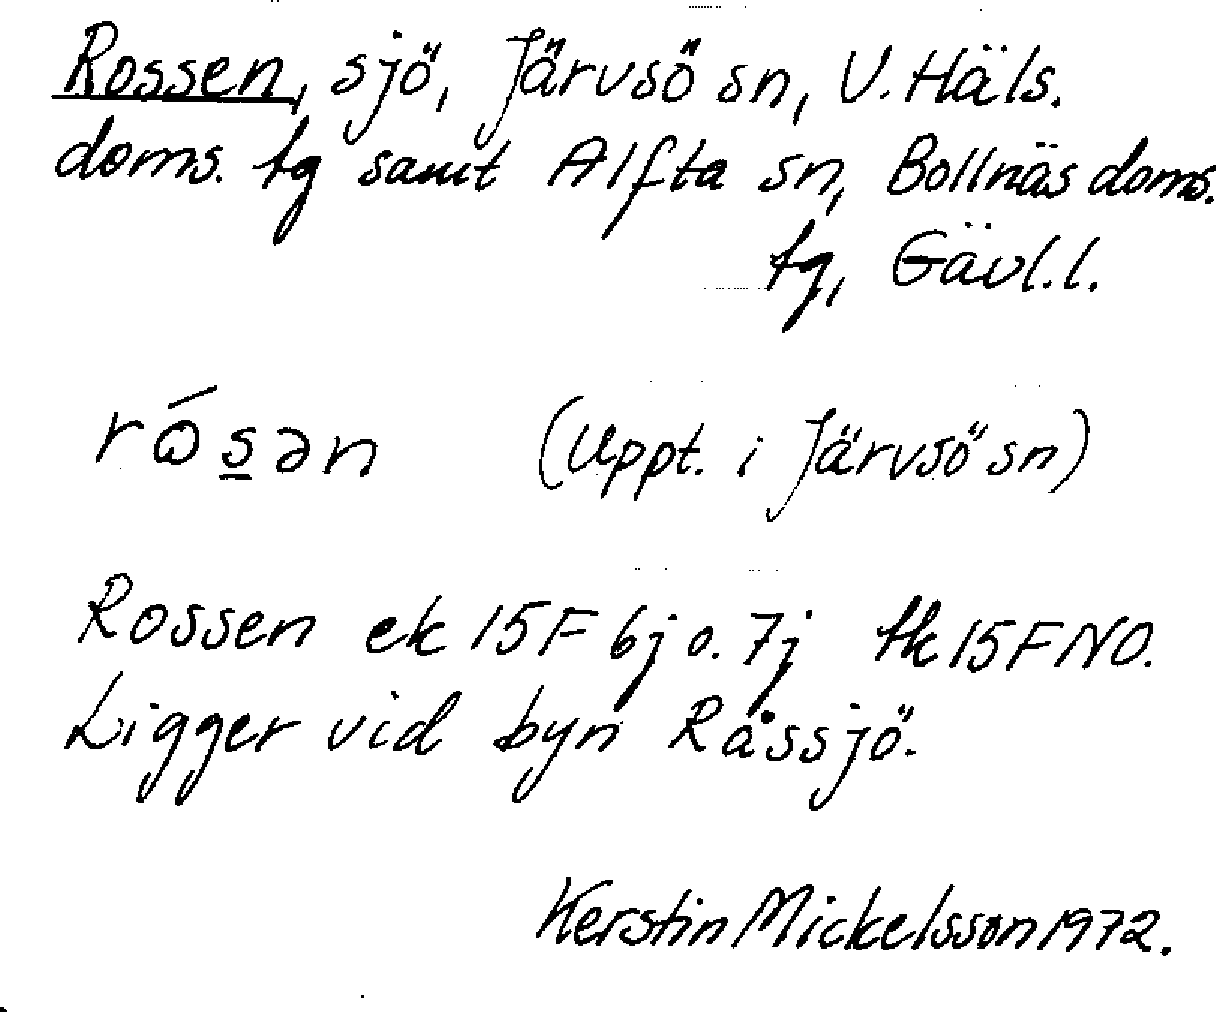 Rossen, sjö, Järvsö sn, V. Häls.
doms. tg samt Alfta sn, Bollnäs doms.
tg, Gävl.l.
rósən (Uppt. i Järvsö sn)
Rossen ek 15F 6j o. 7j tk 15F NO.
Ligger vid byn Råssjö.
Kerstin Mickelsson 1972.